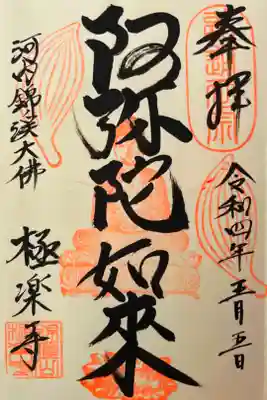 奉拝
令和四年五月五日
阿弥陀如来
河内錦渓大佛
極楽寺